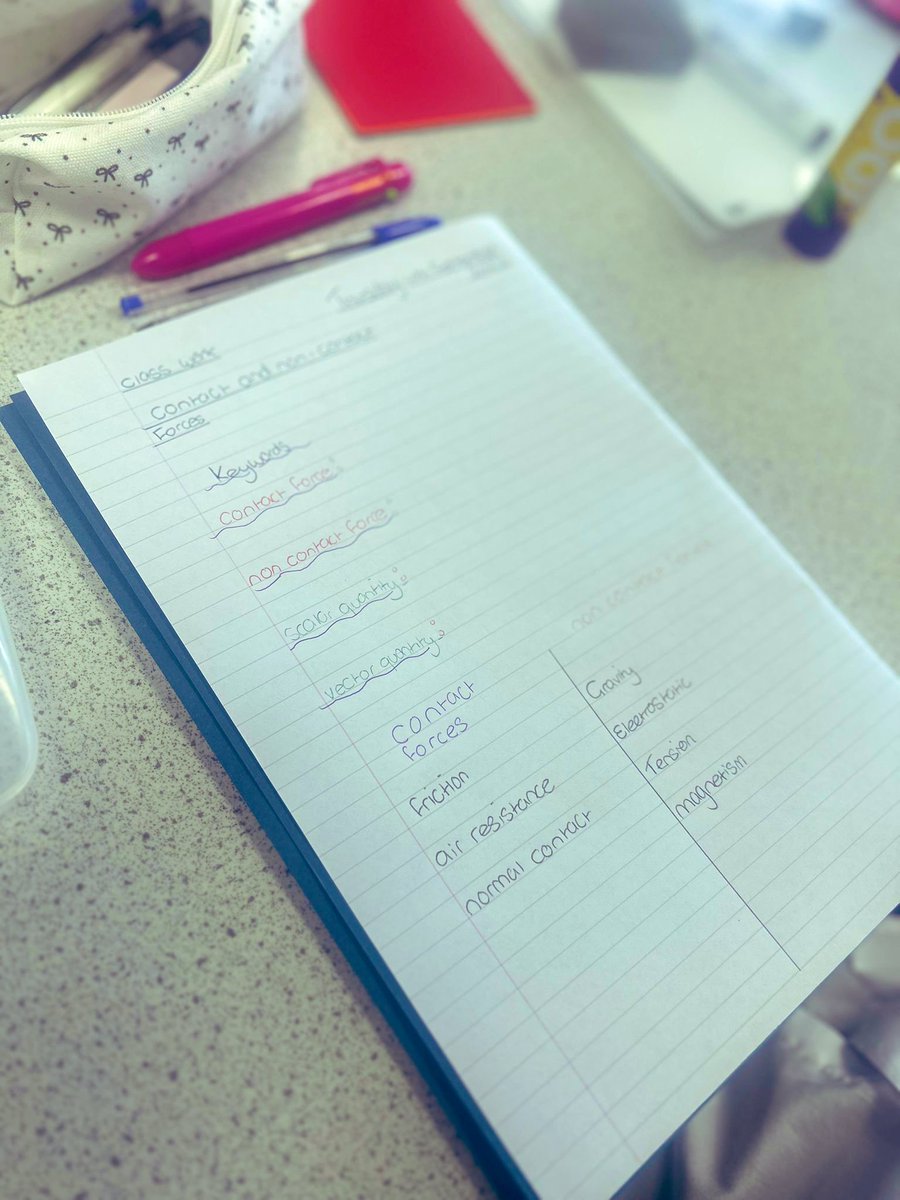 Class work
Contact and non-contact
Forces
Keywords
contact force:
non contact force
scalar quantity:
vector quantity:
contact
forces
friction
air resistance
normal contact
non contact forces
Gravity
Electrostatic
Tension
magnetism